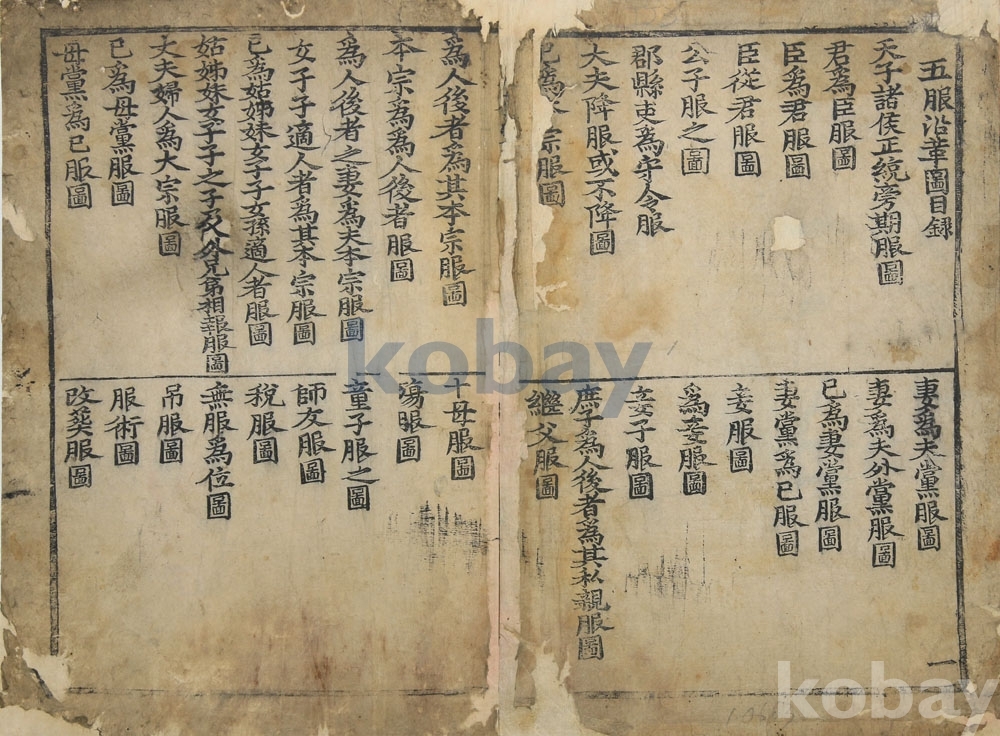 五服沿革圖目録
天子諸侯正統旁期服圖
君爲臣服圖
臣爲君服圖
臣從君服圖
公子服之圖
郡縣吏爲守令服
大夫降服或不降圖
己爲宗服圖
爲人後者爲其本宗服圖
本宗爲爲人後者服圖
爲人後者之妻爲夫本宗服圖
女子子適人者爲其本宗服圖
已爲姑姊妹女子子女孫適人者服圖
姑姊妹女子子之子及外兄弟相報服圖
丈夫婦人爲大宗服圖
已爲母黨服圖
母黨爲已服圖
妻爲夫黨服圖
妻爲夫外黨服圖
已爲妻黨服圖
妻黨爲已服圖
妾服圖
爲妾服圖
妾子服圖
庶子爲人後者爲其私親服圖
繼父服圖
十母服圖
殤服圖
童子服之圖
師友服圖
稅服圖
無服爲位圖
吊服圖
服術圖
改葬服圖
一
kobay
kobay